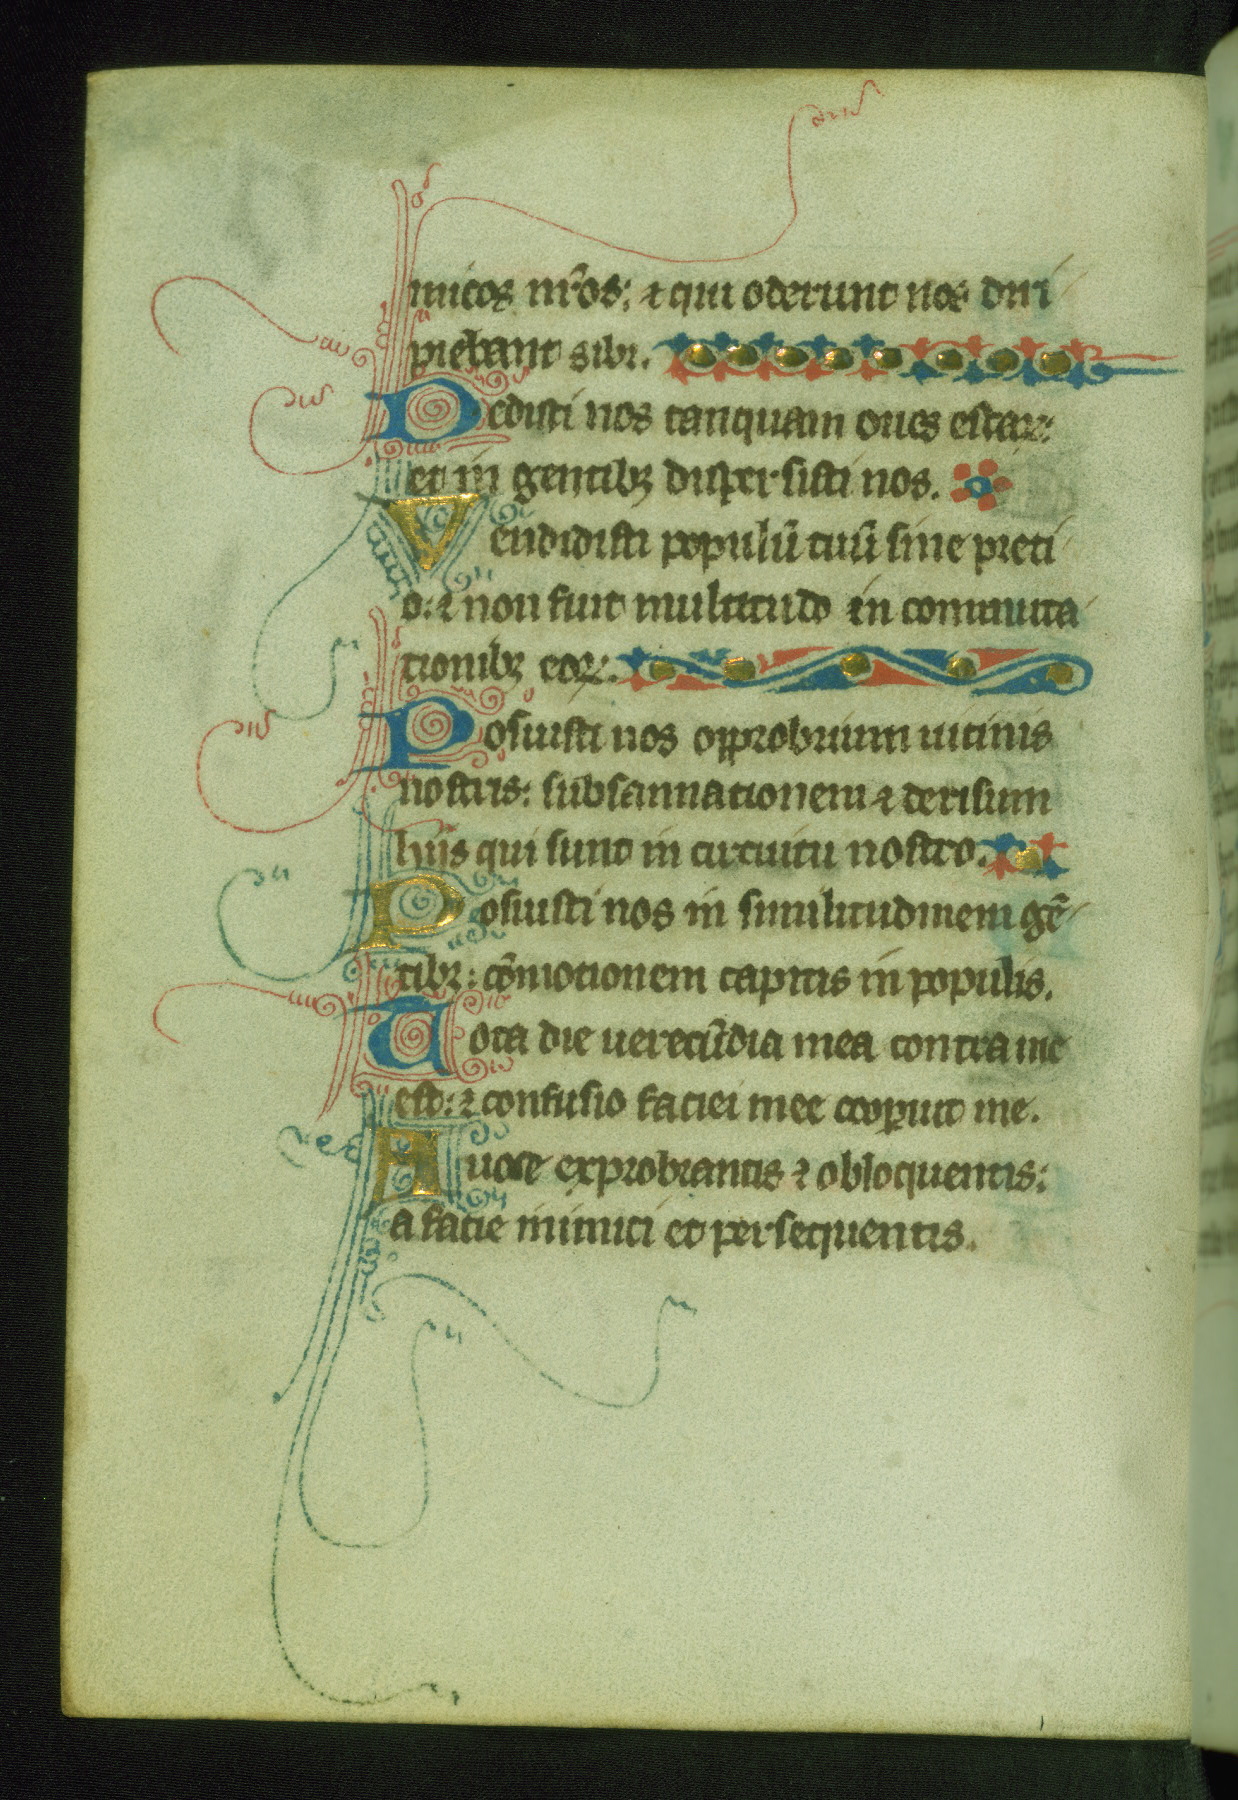 imicos nr̃os: ⁊ qui oderunt nos diri
piebant sibi.
Dedisti nos tanquam oues escaꝝ:
et in gentibꝫ dispersisti nos.
Vendidisti populũ tuũ sine preti
o: ⁊ non fuit multitudo in commuta
tionibꝫ eoꝝ.
Posuisti nos opprobrium uicinis
nostris: subsannationem ⁊ derisum
hiis qui sunt in circuitu nostro.
Posuisti nos in similitudinem gẽ
tibꝫ: cõmotionem capitis in populis.
Tota die uerecũdia mea contra me
est: ⁊ confusio faciei mee cooꝑuit me.
A uoce exprobrantis ⁊ obloquentis:
a facie inimici et persequentis.